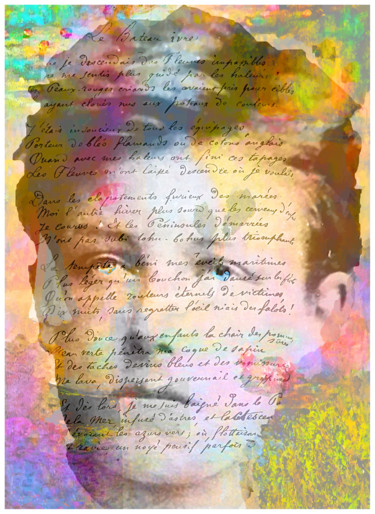 Le Bateau ivre
je descendais des Fleuves impassibles
ne me sentis plus guidé par les haleurs :
Peaux-rouges criards les avaient pris pour cibles
ayant cloués nus aux poteaux de couleurs.
J'étais insoucieux de tous les équipages,
Porteur de blés flamands ou de cotons anglais
Quand avec mes haleurs ont fini ces tapages,
Les Fleuves m'ont laissé descendre où je voulais
Dans les clapotements furieux des marées
Moi l'autre hiver plus sourd que les cerveaux d'
Je courus ! et les Péninsules démarrées
N'ont pas subi tohu-bohus plus triomphants
tempête a béni mes éveils maritimes
Plus léger qu'un bouchon j'ai dansé sur les flots
Qu'on appelle rouleurs éternels de victimes,
nuits sans regretter l'oeil niais des falots !
Plus douce qu'aux enfants la chair des pommes
L'eau verte pénétra ma coque de sapin
Et des taches de vins bleus et des vomissures
Me lava dispersant gouvernail et grappin
dès lors, je me suis baigné dans le P
de la Mer infusé d'astres et latescent
Dévorant les azurs verts ; où, flottaison
ravie, un noyé pensif parfois